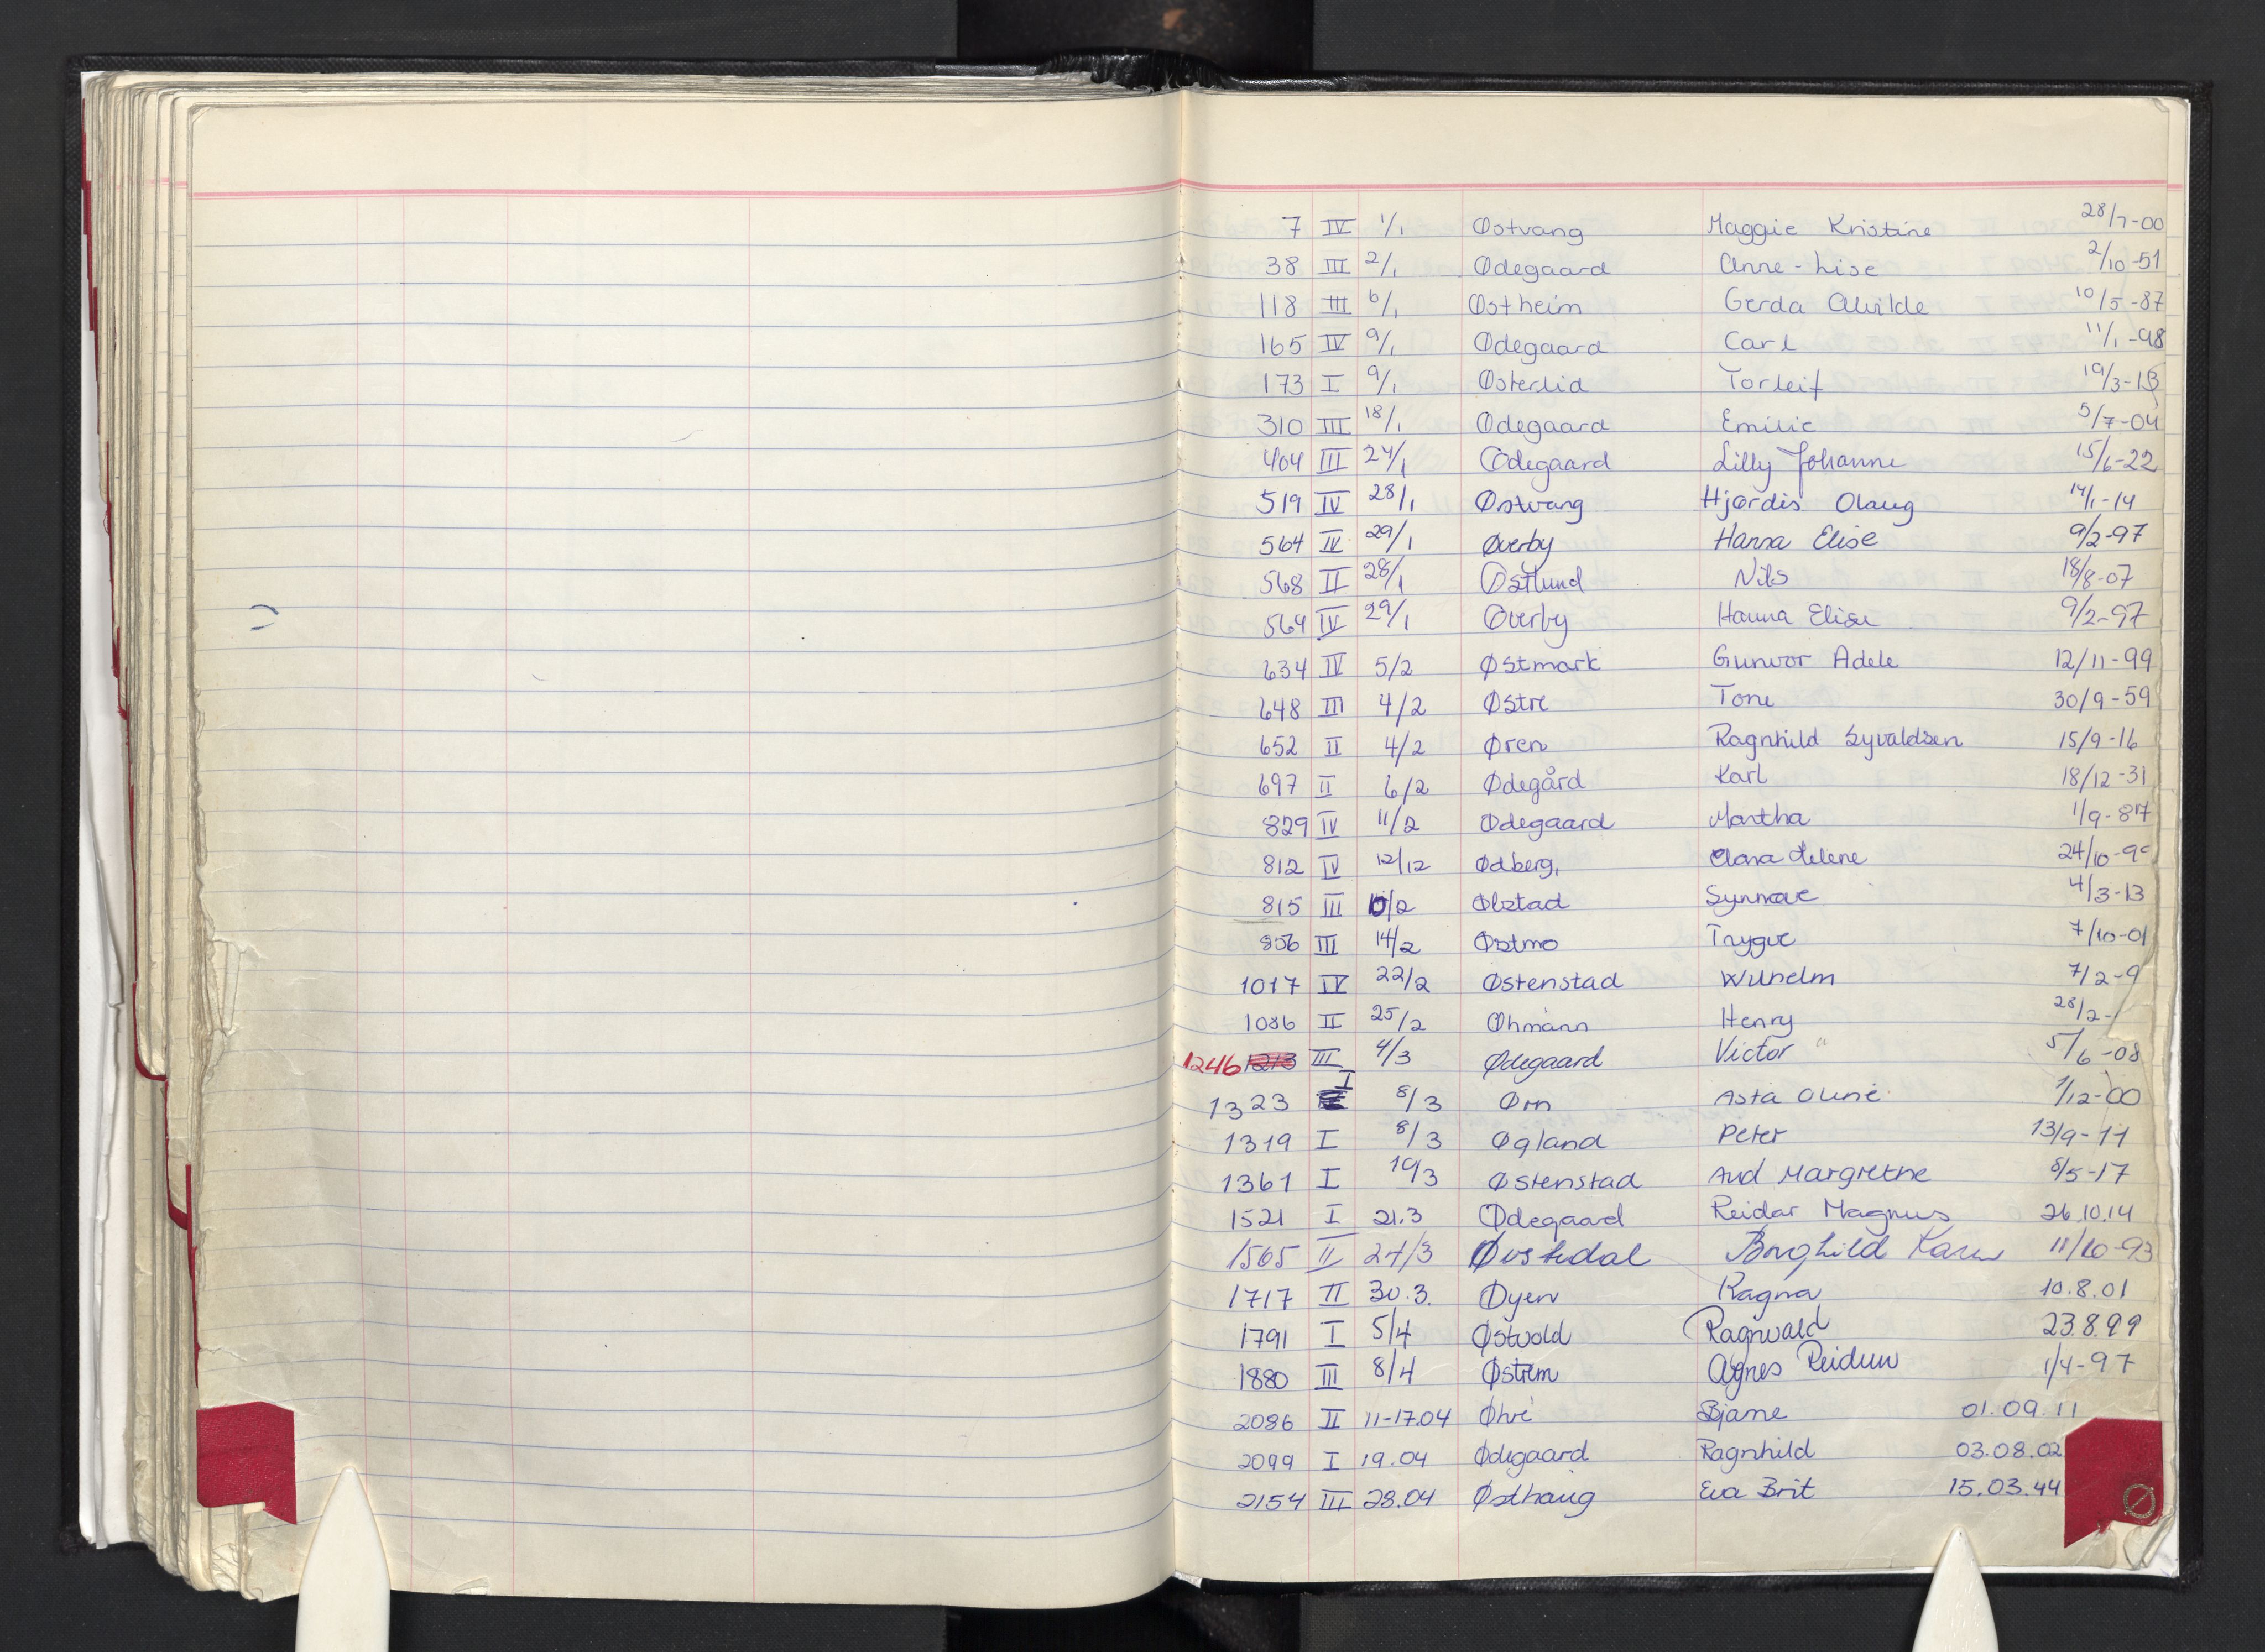 7 IV 1/1 Østvang Maggie Kristine 28/7-00
38 III 2/1 Ødegaard Anne-Lise 2/10-51
118 III 6/1 Østheim Gerda Alvilde 10/5-87
165 IV 9/1 Ødegaard Carl 11/1-98
173 I 9/1 Østerlid Torleif 19/3-13
310 III 18/1 Ødegaard Emilie 5/7-04
404 III 24/1 Ødegaard Lilly Johanne 15/6-22
519 IV 28/1 Østvang Hjørdis Olaug 14/1-14
564 IV 29/1 Øverby Hanna Elise 9/2-97
568 II 28/1 Østlund Nils 18/8-07
564 IV 29/1 Øverby Hanna Elise 9/2-97
634 IV 5/2 Østmark Gunvor Adele 12/11-99
648 III 4/2 Østre Tone 30/9-59
652 II 4/2 Øren Ragnhild Syvaldsen 15/9-16
697 II 6/2 Ødegård Karl 18/12-31
829 IV 11/2 Ødegaard Martha 1/9-87
812 IV 12/12 Ødberg, Clara Helene 24/10-9
815 III 10/2 Ølstad Synnøve 4/3-13
856 III 14/2 Østmo Trygve 7/10-01
1017 IV 22/2 Østenstad Wilhelm 7/2-9
1086 II 25/2 Øhmann Henry 28/2-
1246 1213 III 4/3 Ødegaard Victor 5/6-08
1323 I 8/3 Ørn Asta Oline 1/12-00
1319 I 8/3 Øgland Peter 13/9-11
1361 I 10/3 Østenstad Aud Margrethe 8/5-17
1521 I 21.3 Ødegaard Reidar Magnus 26.10.14
1565 II 24/3 Øvstedal Borghild Karen 11/10-93
1717 II 30.3. Øyen Ragna 10.8.01
1791 I 5/4 Østvold Ragnvald 23.8.99
1880 III 8/4 Østrem Agnes Reidun 1/4-97
2086 II 11-17.04 Øhre Bjarne 01.09.11
2099 I 19.04 Ødegaard Ragnhild 03.08.02
2154 III 28.04 Østhaug Eva Brit 15.03.44
Ø